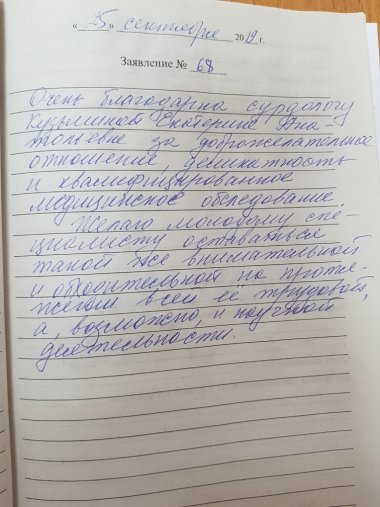 « 25 » сентября 2019 г.
Заявление № 68
Очень благодарна сурдологу
Кузьминой Екатерине Ана
тольевне за доброжелательное
отношение, деликатность
и квалифицированное
медицинское обследование.
Желаю молодому спе-
циалисту оставаться
такой же внимательной
и обходительной на протя-
жении всей её трудовой,
а, возможно, и научной
деятельности.